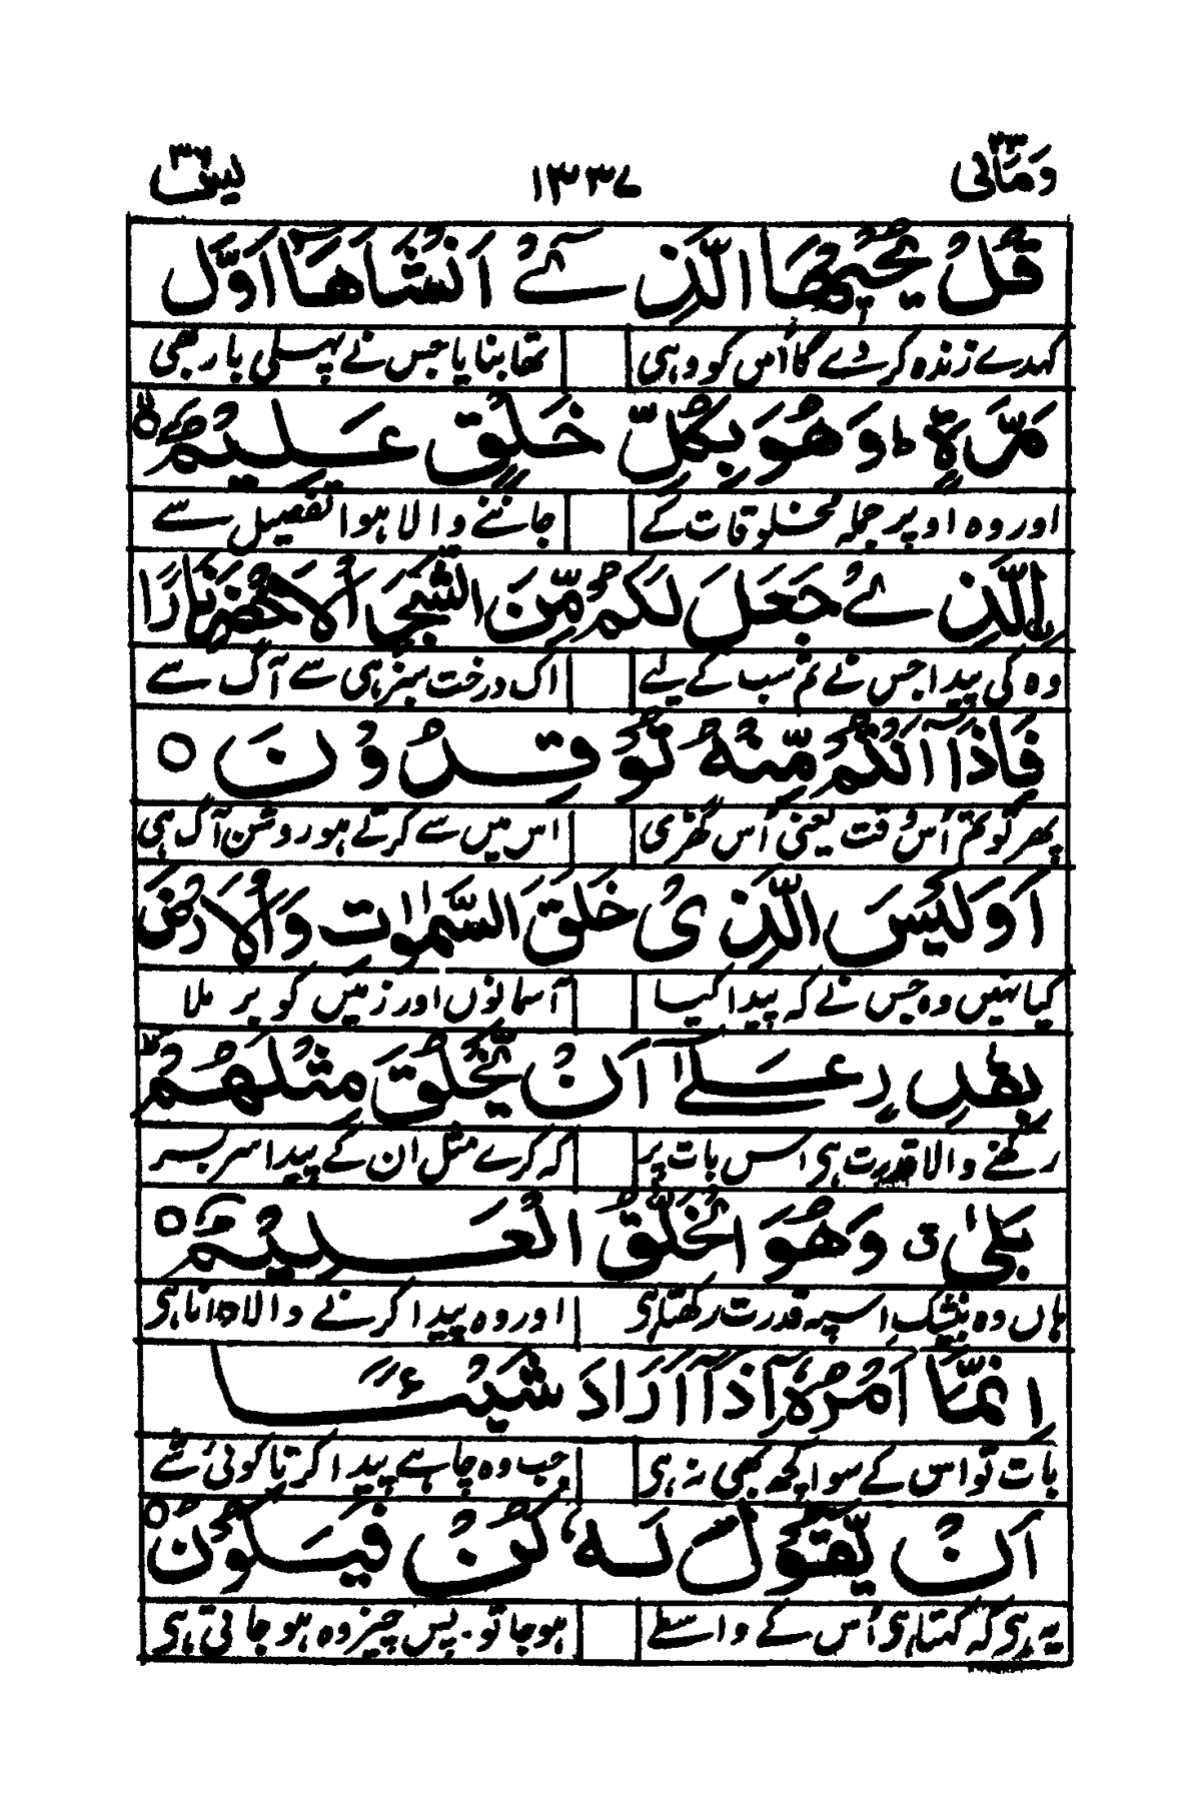 وَمَالِیَ ۲۳ ۱۳۳۷ یٰسٓ ۳۶
قُلْ یُحْیِیْهَا الَّذِیْۤ اَنْشَاَهَاۤ اَوَّلَ
کہدے زندہ کر دے گا اُس کو وہی تھا بنایا جس نے پہلی بار ہی
مَرَّةٍ ؕ وَهُوَ بِكُلِّ خَلْقٍ عَلِیْمُ ۙ
اور وہ اوپر جملہ مخلوقات کے جاننے والا ہوا تفصیل سے
اِلَّذِیْ جَعَلَ لَكُمْ مِّنَ الشَّجَرِ الْاَخْضَرِ نَارًا
وہ کی پیدا جس نے تم سب کے لیے اک درخت سبز ہی سے آگ سے
فَاِذَاۤ اَنْتُمْ مِّنْهُ تُوْقِدُوْنَ ○
پھر گو تم اُس وقت یعنی اُس گھڑی اس میں سے کرتے ہو روشن آگ ہی
اَوَلَیْسَ الَّذِیْ خَلَقَ السَّمٰوٰتِ وَالْاَرْضَ
کیا نہیں وہ جس نے کہ پیدا کیا آسمانوں اور زمیں کو بر ملا
بِقٰدِرٍ عَلٰۤی اَنْ یَّخْلُقَ مِثْلَهُمْ ؕ
رکھنے والا قدرت ہی اس بات پر کہ کرے مثل ان کے پیدا سر بسر
بَلٰی ۗ وَهُوَ الْخَلّٰقُ الْعَلِیْمُ ○
ہاں وہ بیشک اسپہ قدرت رکھتا ہی اور وہ پیدا کرنے والا دانا ہی
اِنَّمَاۤ اَمْرُهٗۤ اِذَاۤ اَرَادَ شَیْـًٔا
بات تو اس کے سوا کچھ بھی نہ ہی جب وہ چاہے پیدا کرتا کوئی شے
اَنْ یَّقُوْلَ لَهٗ كُنْ فَیَكُوْنُ ○
یہ ہی کہ کہتا ہی اُس کے واسطے ہو جا تو ۔ پس چیز وہ ہو جاتی ہی